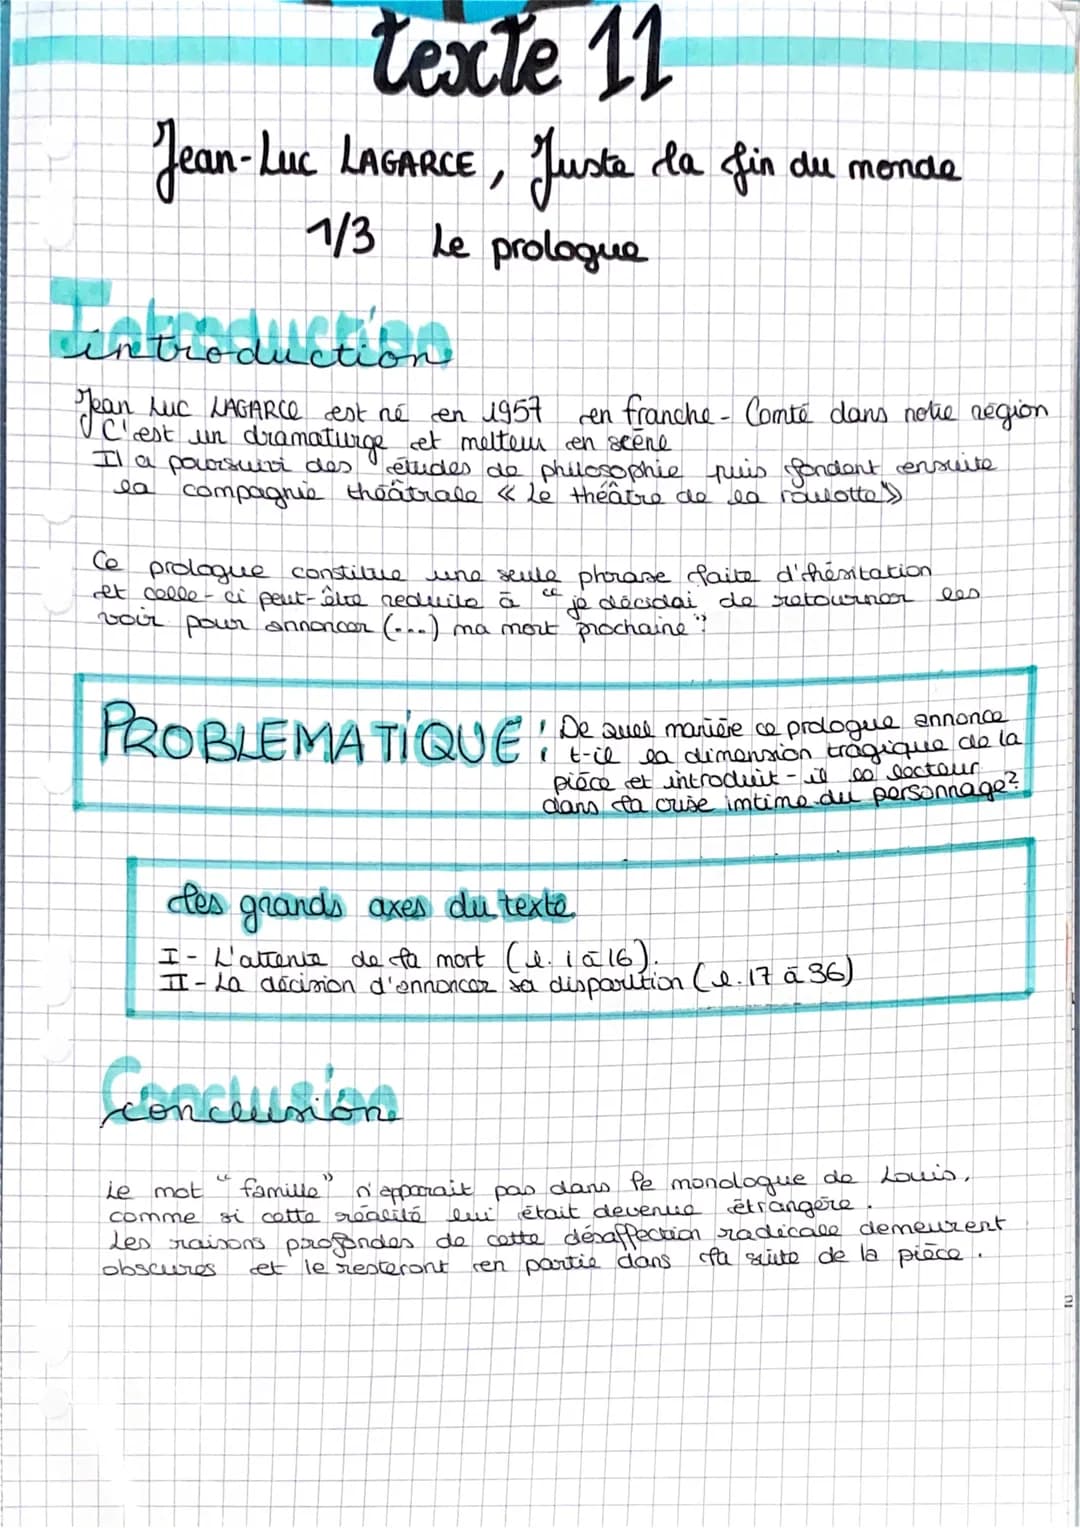 texte 11
Jean-Luc LAGARCE, Juste la fin du monde
1/3 Le prologue
Introduction
introduction
Jean Luc LAGARCE est né en 1957 en franche-Comté dans notre région
C'est un dramaturge et metteur en scène
Il a poursuivi des études de philosophie puis fondant ensuite
la compagnie théâtrale « Le théâtre de la roulotte »
Ce prologue constitue une seule phrase faite d'hésitation
et celle-ci peut-être reduite à "je décidai de retourner les
voir pour annoncer (...) ma mort prochaine".
PROBLEMATIQUE : De quel manière ce prologue annonce
t-il la dimension tragique de la
pièce et introduit-il le lecteur
dans la crise intime du personnage?
Les grands axes du texte
I - L'attente de la mort (l. 1 à 16).
II - La décision d'annoncer sa disparition (l. 17 à 36)
Conclusion
conclusion
Le mot "famille" n'apparait pas dans le monologue de Louis,
comme si cette réalité lui était devenue étrangère.
Les raisons profondes de cette désaffection radicale demeurent
obscures et le resteront en partie dans la suite de la pièce.
2